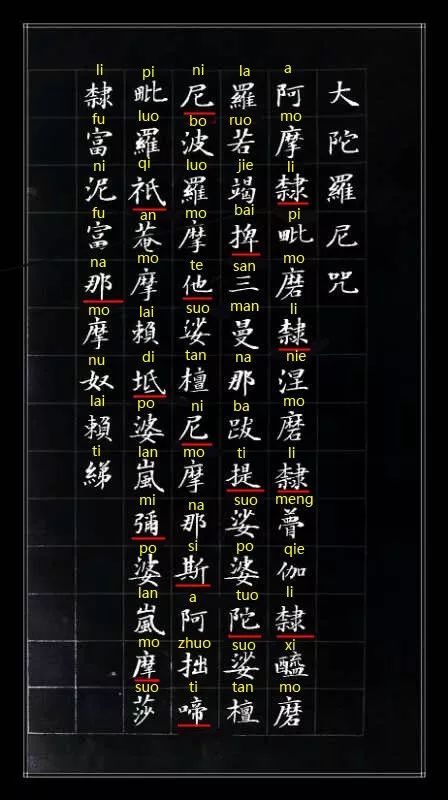 大陀羅尼咒
a mo li pi mo li nie mo li meng qie li xi mo
阿摩隸毗磨隸涅磨隸瞢伽隸醯磨
la ruo jie bai san man na ba ti suo po tuo suo tan
羅若竭捭三曼那跋提娑婆陀娑檀
ni bo luo mo te suo tan ni mo na si a zhuo ti
尼波羅摩他娑檀尼摩那斯阿拙啼
pi luo qi an mo lai di po lan mi po lan mo suo
毗羅祇菴摩賴坻婆嵐彌婆嵐摩莎
li fu ni fu na mo nu lai ti
隸富泥富那摩奴賴綈